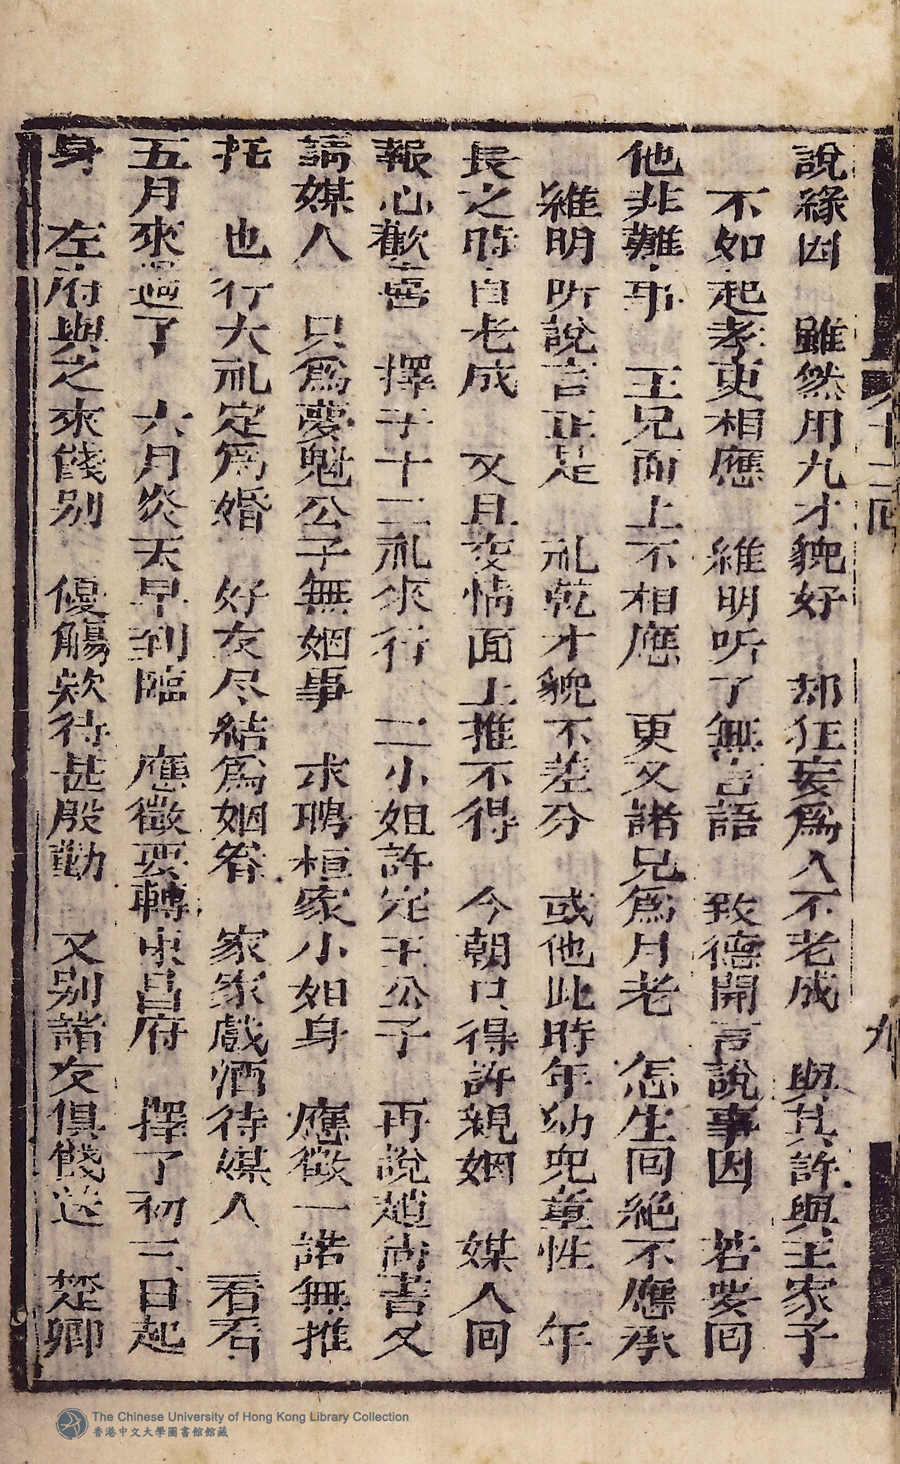 說緣因　雖然用九才貌好　却狂妄爲人不老成　與其許與王家子
不如起孝更相應　維明听了無言語　致德開言說事因　若要回
他非難事　王兄面上不相應　更又諸兄爲月老　怎生回絕不應承
維明听說言正是　礼乾才貌不差分　或他此時年幼児童性　年
長之時自老成　又且交情面上推不得　今朝只得許親姻　媒人回
報心歡喜　擇于十二礼來行　二小姐許定王公子　再說趙尚書又
請媒人　只爲夢魁公子無姻事　求聘桓家小姐身　應徵一諾無推
托　也行大礼定爲婚　好友尽結爲姻眷　家家戲酒待媒人　看看
五月來過了　六月炎天早到臨　應徵要轉東昌府　擇了初三日起
身　左府與之來餞别　優觴欵待甚殷勤　又别諸友俱餞送　楚卿
十二回
九
The Chinese University of Hong Kong Library Collection
香港中文大學圖書館館藏